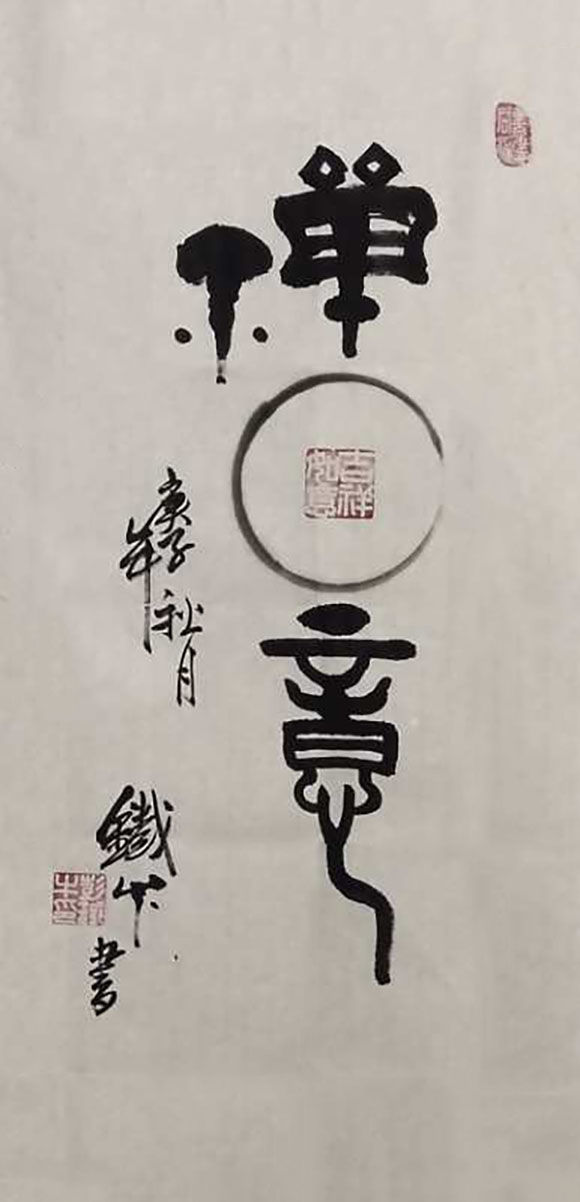 禪
意
吉祥如意
庚子年秋月
鐵牛書